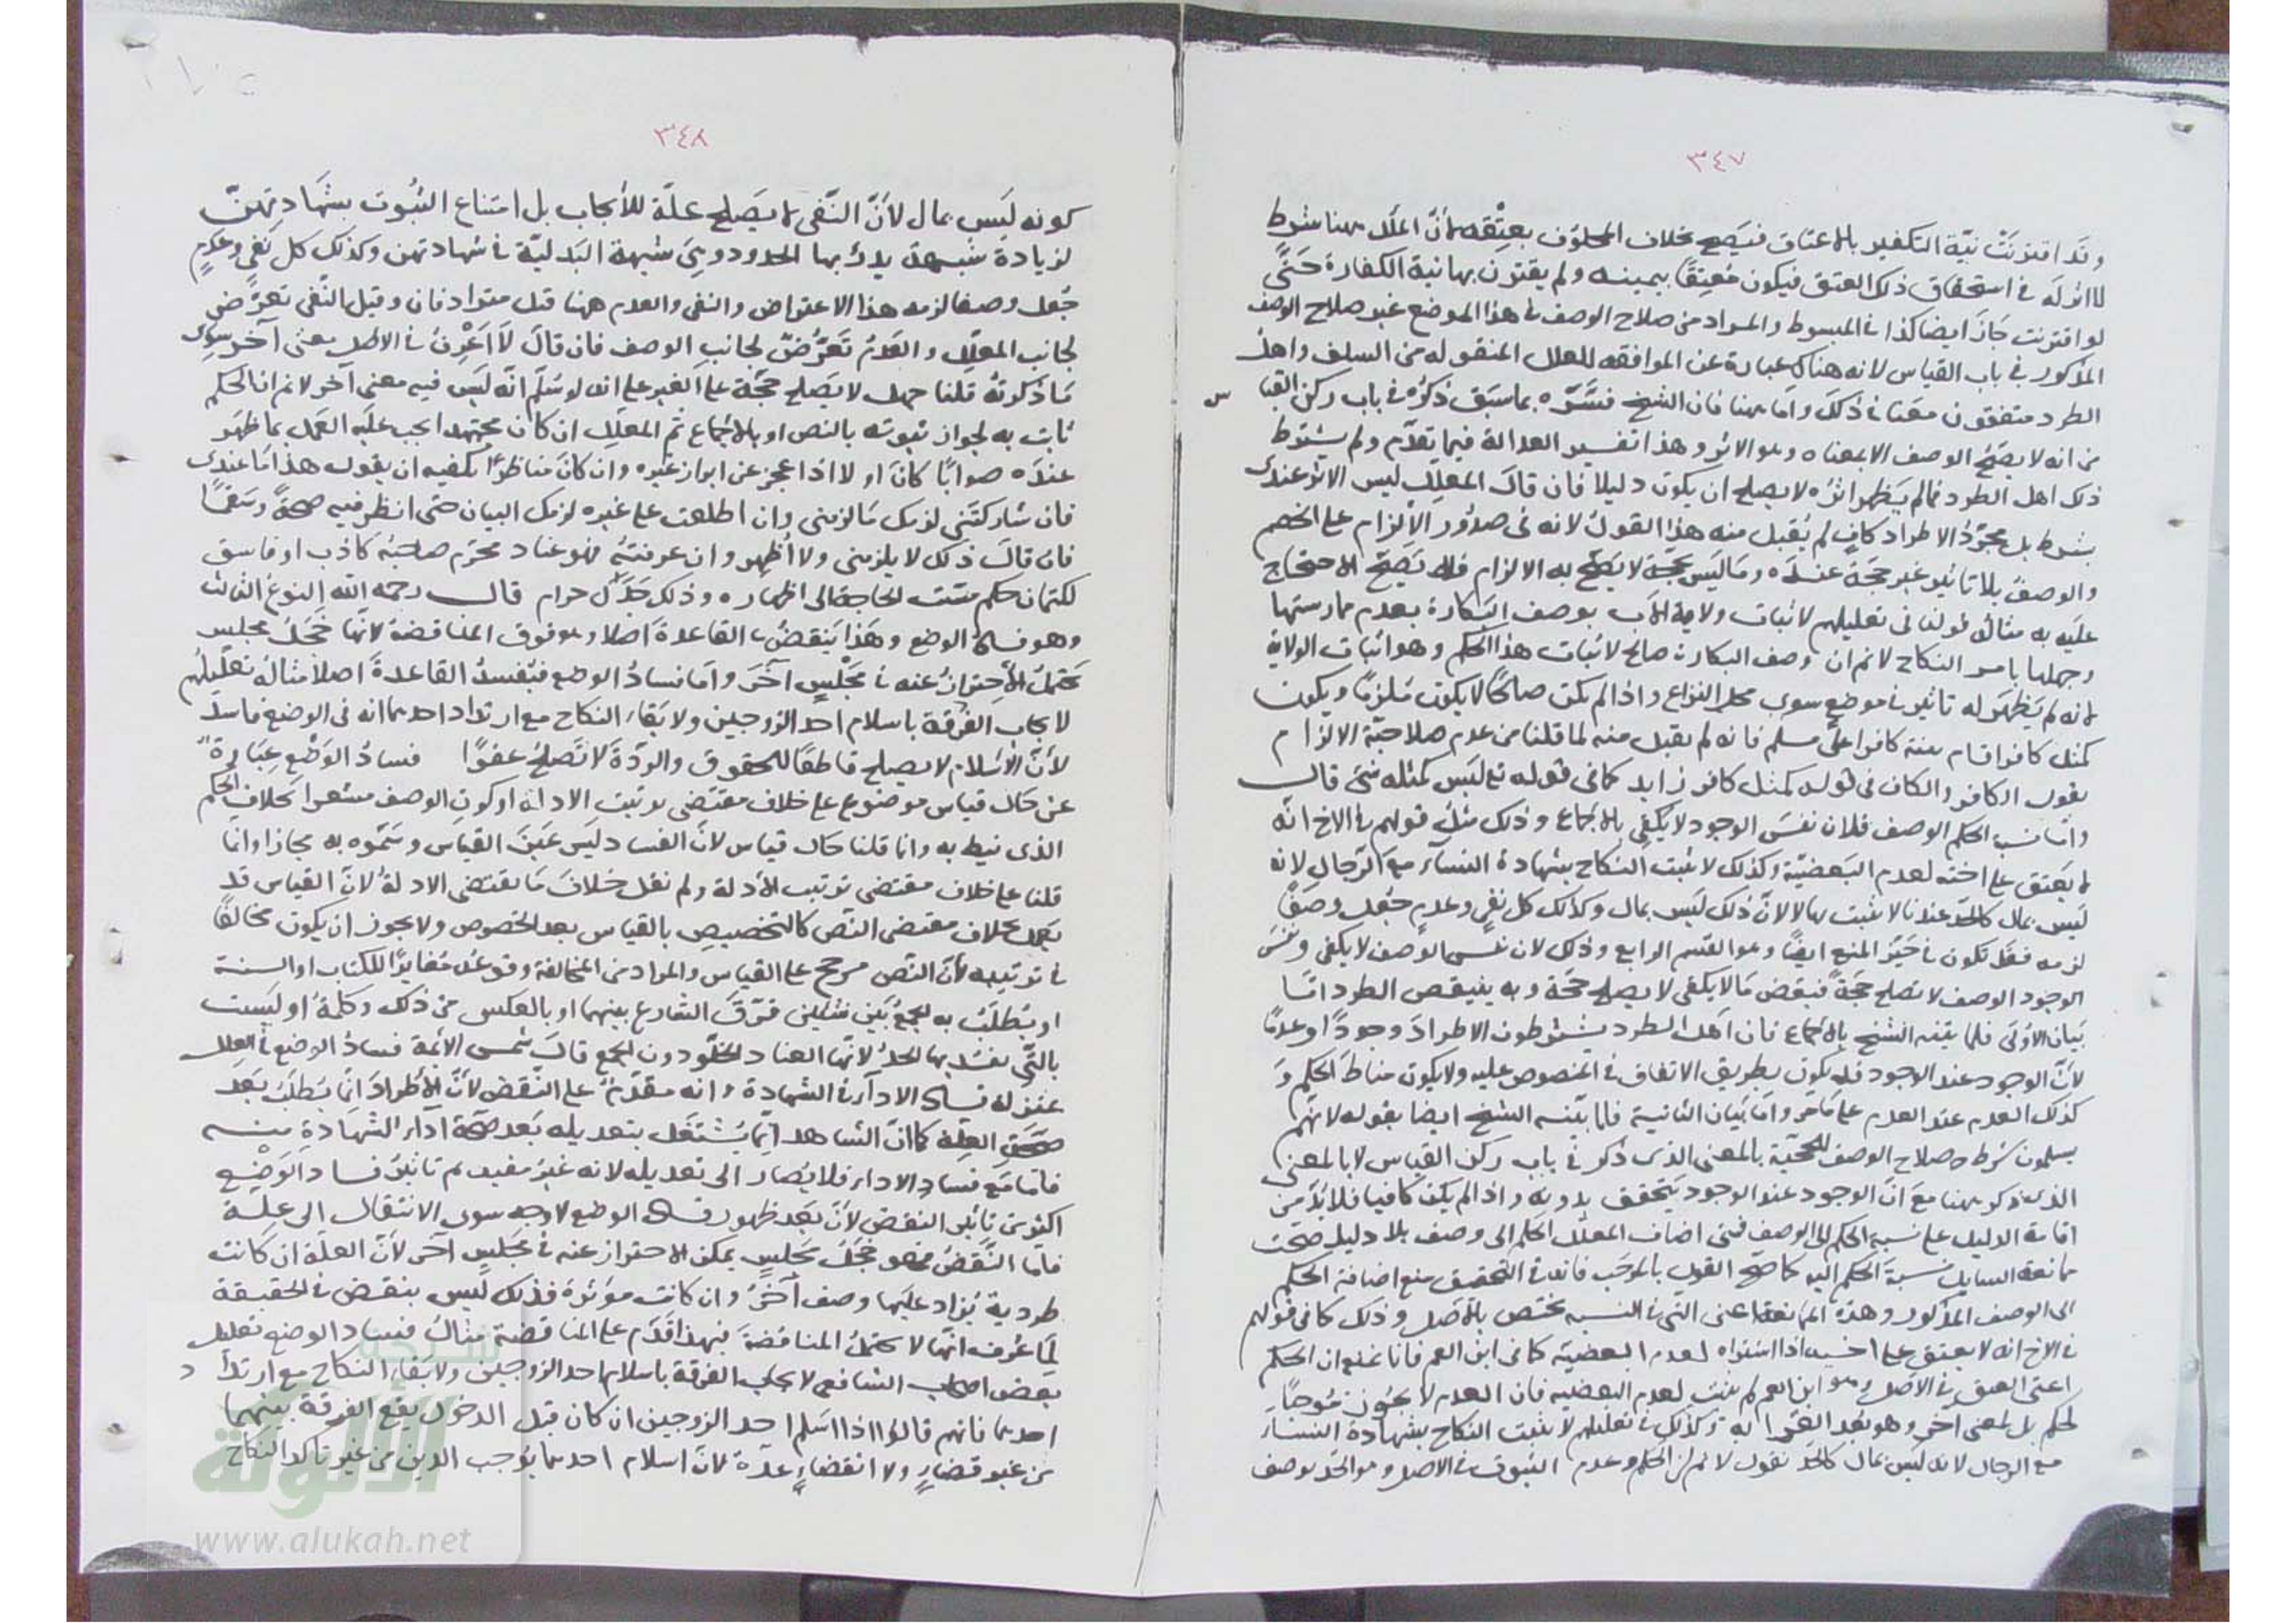 ٣٤٧
وقد اقترنت نيّة التكفير بالاعتاق فيصح بخلاف المحلوف بعتقه لانّ الملك هنا شرط
لا اثر له في استحقاق ذلك العتق فيكون مُعتِقًا بيمينه ولم يقترن بها نية الكفارة حتّى
لو اقترنت جاز ايضا كذا في المبسوط والمراد من صلاح الوصف في هذا الموضع غير صلاح الوصف
المذكور في باب القياس لانه هناك عبارة عن الموافقه للعلل المنقوله من السلف واهل
الطرد متفقون معنا في ذلك واما هنا فان الشيخ فسّره بما سبق ذكره في باب ركن القياس
من انه لا يصح الوصف الا بمعناه وهو الاثر وهذا تفسير العدالة فيما تقدّم ولم يشترط
ذلك اهل الطرد فما لم يظهر اثره لا يصلح ان يكون دليلا فان قال المعلِّل ليس الاثر عندى
بشرط بل مجرّدُ الاطراد كافٍ لم يُقبل منه هذا القولُ لانه في صدور الالزام على الخصم
والوصف بلا تاثير غير حجة عنده وما ليس بحجة لا يصح به الالزام فلا يصحّ الاحتجاج
عليه به مثاله قولنا في تعليلهم لاثبات ولاية الاب بوصف البكارة بعدم ممارستها
وجهلها بامر النكاح لا نم ان وصف البكارة صالح لاثبات هذا الحكم وهو اثبات الولاية
لانه لم يظهر له تاثير في موضع سوى محل النزاع واذا لم يكن صالحًا لا يكون مُلزمًا ويكون
كمثل كافر اقام بينة كافرا على مسلم فانه لم يقبل منه لما قلنا من عدم صلاحيّة الالزام
بقول الكافر والكاف في قوله كمثل كافر زايد كما في قوله تع ليس كمثله شئ قال
واما نسبة الحكم الوصف فلان نفس الوجود لا يكفي بالاجماع وذلك مثل قولهم في الاخ انّه
لا يعتق على اخته لعدم البعضيّة وكذلك لا يثبت النكاح بشهادة النسآء مع الرّجال لانه
ليس بمال كالحدّ عندنا لا يثبت بها لا لانّ ذلك ليس بمال وكذلك كل نفي وعدم جُعل وصفًا
لزمه فقد تكون في حيّز المنع ايضًا وهو القسم الرابع وذلك لان نفس الوصف لا يكفى ونفس
الوجود الوصف لا تصلح حجّةً فبعض ما لا يكفى لا يصلح حجّة وبه ينتقص الطرد امّا
بيان الاولى فلما بيّنه الشيخ بالاجماع فان اهل الطرد يشترطون الاطرادَ وجودًا وعدمًا
لانّ الوجود عند الوجود قد يكون بطريق الاتفاق في المنصوص عليه ولا يكون مناطَ الحكم و
كذلك العدم عند العدم على ما مر واما بيان الثانية فلما بيّنه الشيخ ايضا بقوله لانهم
يسلمون شرط صلاح الوصف للحجيّة بالمعنى الذى ذكر في باب ركن القياس لا بالمعنى
الذى ذكر هنا مع انّ الوجود عند الوجود يتحقق بدونه واذا لم يكن كافيا فلا بدّ من
اقامة الدليل على نسبة الحكم الى الوصف فمتى اضاف المعلّل الحكم الى وصف بلا دليل صحّت
ممانعة السايل نسبة الحكم اليه كما صحّ القول بالموجَب فانه في التحقيق منع اضافة الحكم
الى الوصف المذكور وهذه الممانعة اعنى التي في النسبه تختص بالاصل وذلك كما في قولهم
في الاخ انه لا يعتق على اخيه اذا اشتراه لعدم البعضية كما في ابن العم فانا نمنع ان الحكم
اعنى العتق في الاصل وهو ابن العم لم يثبت لعدم البعضيه فان العدم لا يجوز موجبًا
لحكم بل لمعنى آخر وهو بعد القرابه وكذلك في تعليلهم لا يثبت النكاح بشهادة النساء
مع الرجال لانه ليس بمال كالحدّ نقول لا نم ان الحكم وعدم الثبوت في الاصل وهو الحدّ بوصف
٣٤٨
كونه ليس بمال لأنّ النّفى لا يصلح علّة للايجاب بل امتناع الثبُوت بشهادتهنّ
لزيادة شبهة يدرُ بها الحدود وهي شبهة البَدليّة في شهادتهن وكذلك كل نفي وعدمٍ
جُعل وصفا لزمه هذا الاعتراض والنفى والعدم ههنا قيل مترادفان وقيل النّفى تعرّض
لجانب المعلِّل والعدمُ تَعرُّضٌ لجانب الوصف فان قال لا اعرفُ في الاصل معنى آخر سوى
ما ذكرتهُ قلنا جهلك لا يصلح حجّة على الغير على انه لو سُلّم انّه ليس فيه معنى آخر لا نم ان الحكم
ثابت به لجواز ثبوته بالنص او بالاجماع ثم المعلِّل ان كان مجتهدا يجب عليه العمل بما ظهر
عنده صوابًا كان او لا اذا عجز عن ابراز غيره وان كان مناظرًا يكفيه ان يقول هذا ما عندى
فان شاركتنى لزمك ما لزمنى وان اطلعت على غيره لزمك البيان حتى انظر فيه صحةً وسقمًا
فان قال ذلك لا يلزمنى ولا اُظهر وان عرفتهُ فهو عناد محرّم صاحبُه كاذب او فاسق
لكتمان حكم مسّت الحاجة الى اظهاره وذلك جَدَل حرام قال رحمه الله النوع الثالث
وهو فساد الوضع وهذا يَنقضُ القاعدة اصلا وهو فوق المناقضة لانّها خَجَلُ مجلس
يحتملُ الاحترازُ عنه في مجلسٍ آخر واما فسادُ الوضع فيُفسدُ القاعدةَ اصلاً مثالُه تعليلُهم
لايجاب الفرقة باسلام احد الزوجين ولابقاء النكاح مع ارتداد احدهما انه في الوضع فاسد
لأنّ الاسلام لا يصلح قاطعًا للحقوق والردّةَ لا تصلحُ عفوًا فسادُ الوَضع عِبَارةٌ
عن حال قياس موضوع على خلاف مقتضى ترتيب الادلة او كون الوصف مشعرا بخلاف الحكم
الذى نيط به وانما قلنا حال قياس لانّ الفساد ليس عين القياس وسمّوه به مجازا وانما
قلنا على خلاف مقتضى ترتيب الادلة ولم نقل خلافَ ما يقتضى الادلةُ لانّ القياس قد
يعمل بخلاف مقتضى النّص كالتخصيص بالقياس بعد الخصوص ولا يجوز ان يكون مخالفًا
في ترتيبه لأنّ النّص مرجح على القياس والمراد من المخالفة وقوعُه مُغايرًا للكتاب او السنة
او يُطلَبُ به الجمعُ بَين شيئين فرّقَ الشارع بينهما او بالعكس من ذلك وكلمةُ او ليست
بالتّى يفسُد بها الحدُّ لانّها العناد الخلوّ دون الجمع قال شمس الائمة فسادُ الوضع في العلل
بمنزلة فساد الادآء في الشهادة وانه مقدّمٌ على النّقض لأنّ الاطرادَ انّما يُطلَبُ بَعد
صحة العلّة كما انّ الشاهد انّما يُشتغَل بتعديله بَعد صحّة ادآء الشهَادةِ منه
فامّا مَع فَساد الاداء فلا يُصار الى تعديله لانه غيرُ مفيد ثم تاثيرُ فساد الوَضْع
اكثر من تاثير النقض لأنّ بَعد ظهور فساد الوضع لا وجه سوى الانتقال الى علّة
فامّا النّقضُ فهو خجَلُ مَجلِسٍ يمكن الاحتراز عنه في مجلسٍ آخر لأنّ العلّة ان كانت
طردية يُزاد عليها وصف آخَرُ وان كانت مؤثرةً فذلك ليس بنقض في الحقيقة
لِمَا عُرف انّها لا تحتملُ المناقضةَ فبهذا قُدّم على المناقضة مثالُ فساد الوضع تعليل
بعض اصحاب الشافعى لايجاب الفرقة باسلام احد الزوجين ولابقاء النكاح مع ارتداد
احدهما فانهم قالوا اذا اسلم احد الزوجين ان كان قبل الدخول يقع الفرقة بينهما
من غير قضاءٍ ولا انقضاءِ عدة لانّ اسلام احدهما يوجب الدين من غير تاكد النكاح
الألوكة
www.alukah.net